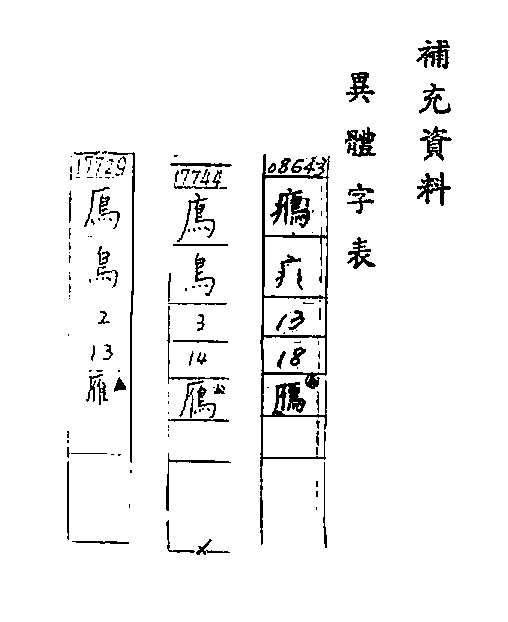 補充資料
異體字表
08643
疒
13
18
17744
鳥
3
14
鴈
17729
鴈
鳥
2
13
雁